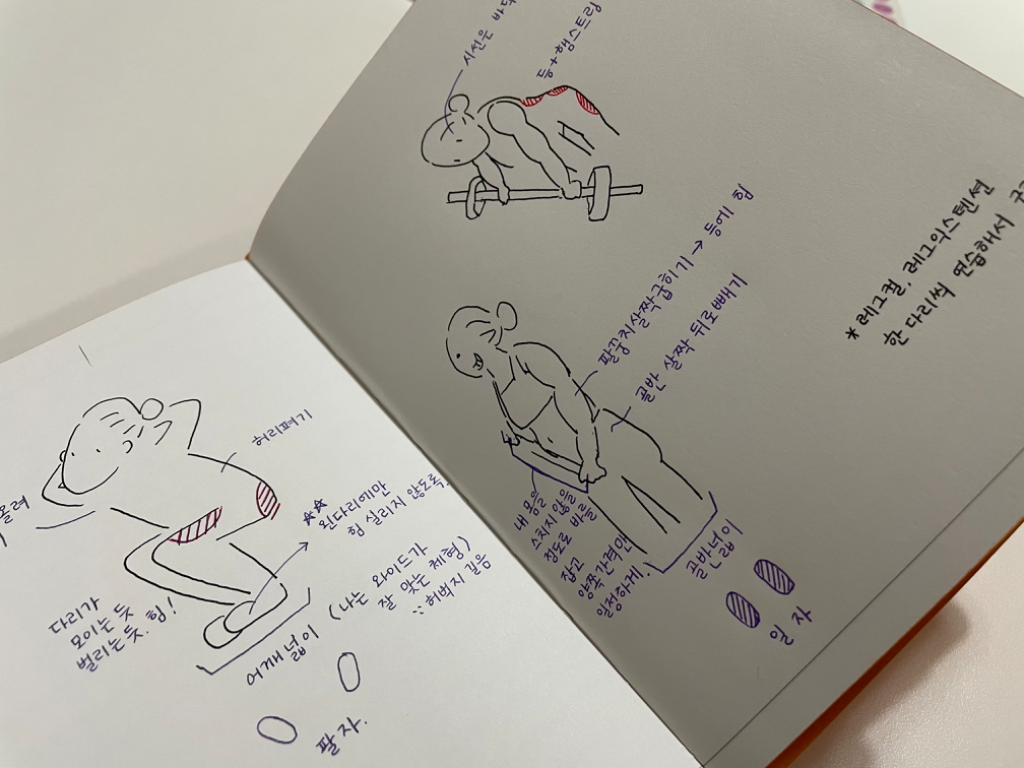 올려
허리펴기
☆☆
왼다리에만
힘 실리지 않도록.
다리가
모이는 듯
벌리는 듯. 힘!
어깨 넓이
(나는 와이드가
잘 맞는 체형)
∵ 허벅지 길음
팔자.
시선은
등+햄스트링
팔꿈치살짝굽히기 → 등에 힘
골반 살짝 뒤로빼기
내 몸을
스치지 않을
정도로 바를
잡고
양쪽간격만
일정하게.
골반넓이
일자
* 레그컬, 레그익스텐션
한 다리씩 연습해서